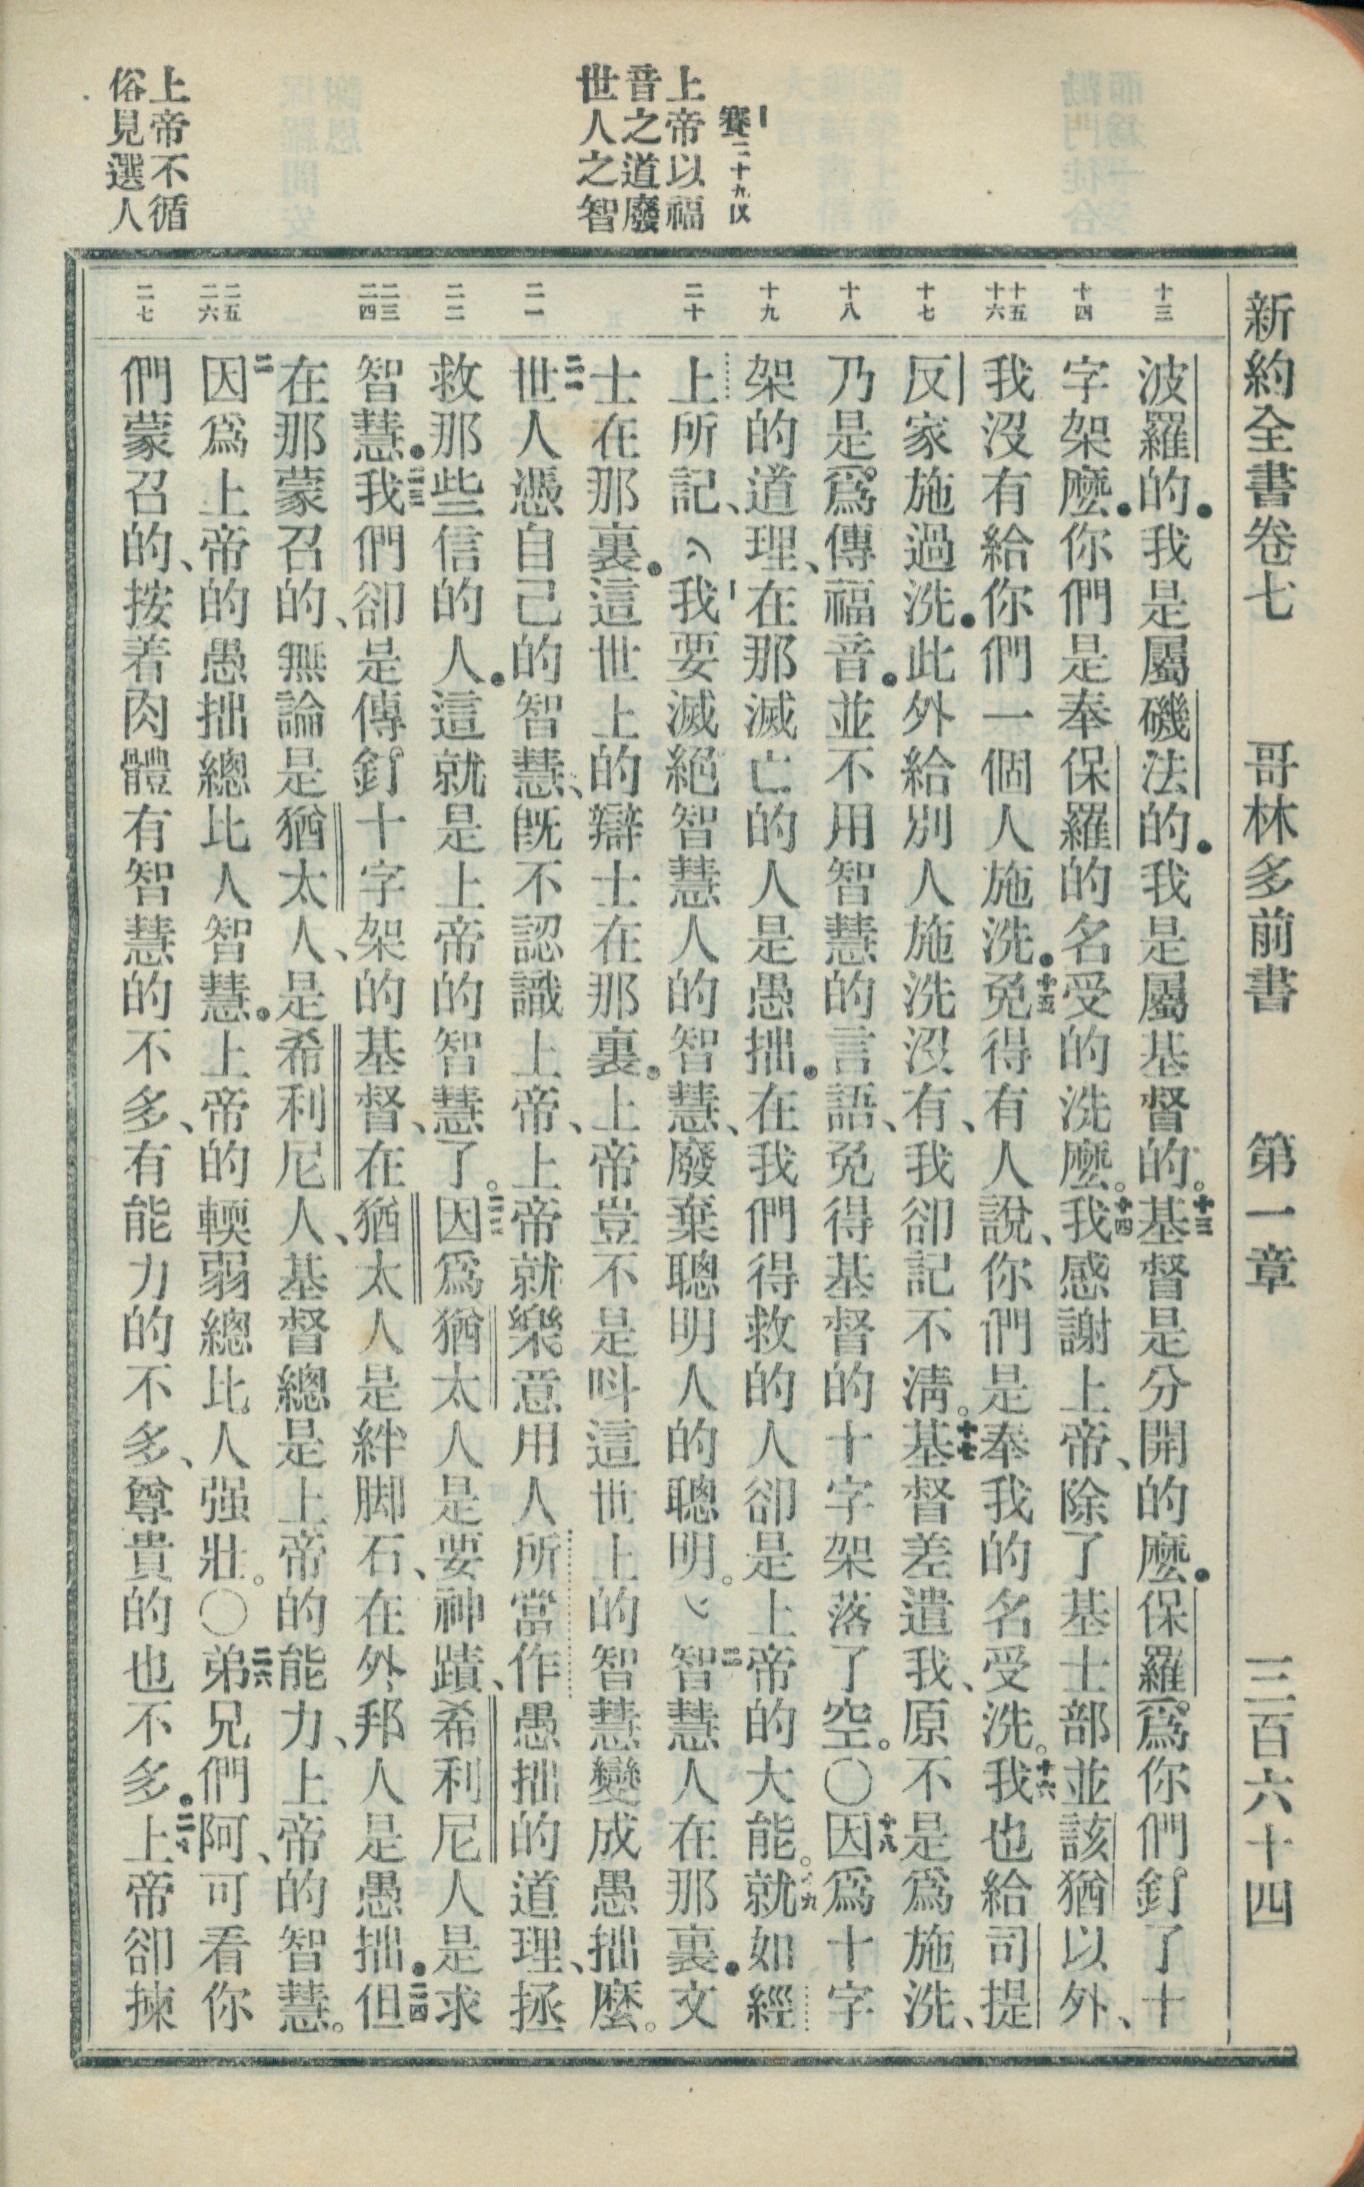 新約全書卷七　哥林多前書　第一章　三百六十四
賽二十九
上帝以福
音之道廢
世人之智
上帝不循
俗見選人
十三
十四
十五
十六
十七
十八
十九
二十
二一
二二
二三
二四
二五
二六
二七
波羅的．我是屬磯法的．我是屬基督的。十三基督是分開的麼．保羅爲你們釘了十
字架麼．你們是奉保羅的名受的洗麼。十四我感謝上帝、除了基士部並該猶以外、
我沒有給你們一個人施洗．十五免得有人說、你們是奉我的名受洗。十六我也給司提
反家施過洗．此外給別人施洗沒有、我卻記不淸。十七基督差遣我、原不是爲施洗、
乃是爲傳福音．並不用智慧的言語、免得基督的十字架落了空。〇十八因爲十字
架的道理、在那滅亡的人是愚拙．在我們得救的人卻是上帝的大能。十九就如經
上所記、我要滅絕智慧人的智慧、廢棄聰明人的聰明。二十智慧人在那裏．文
士在那裏．這世上的辯士在那裏．上帝豈不是呌這世上的智慧變成愚拙麼。
二一世人憑自己的智慧、旣不認識上帝、上帝就樂意用人所當作愚拙的道理、拯
救那些信的人．這就是上帝的智慧了。二二因爲猶太人是要神蹟、希利尼人是求
智慧．二三我們卻是傳釘十字架的基督、在猶太人是絆脚石、在外邦人是愚拙．二四但
在那蒙召的、無論是猶太人、是希利尼人、基督總是上帝的能力、上帝的智慧。
二五因爲上帝的愚拙總比人智慧．上帝的輭弱總比人强壯。〇二六弟兄們阿、可看你
們蒙召的、按着肉體有智慧的不多、有能力的不多、尊貴的也不多．二七上帝卻揀